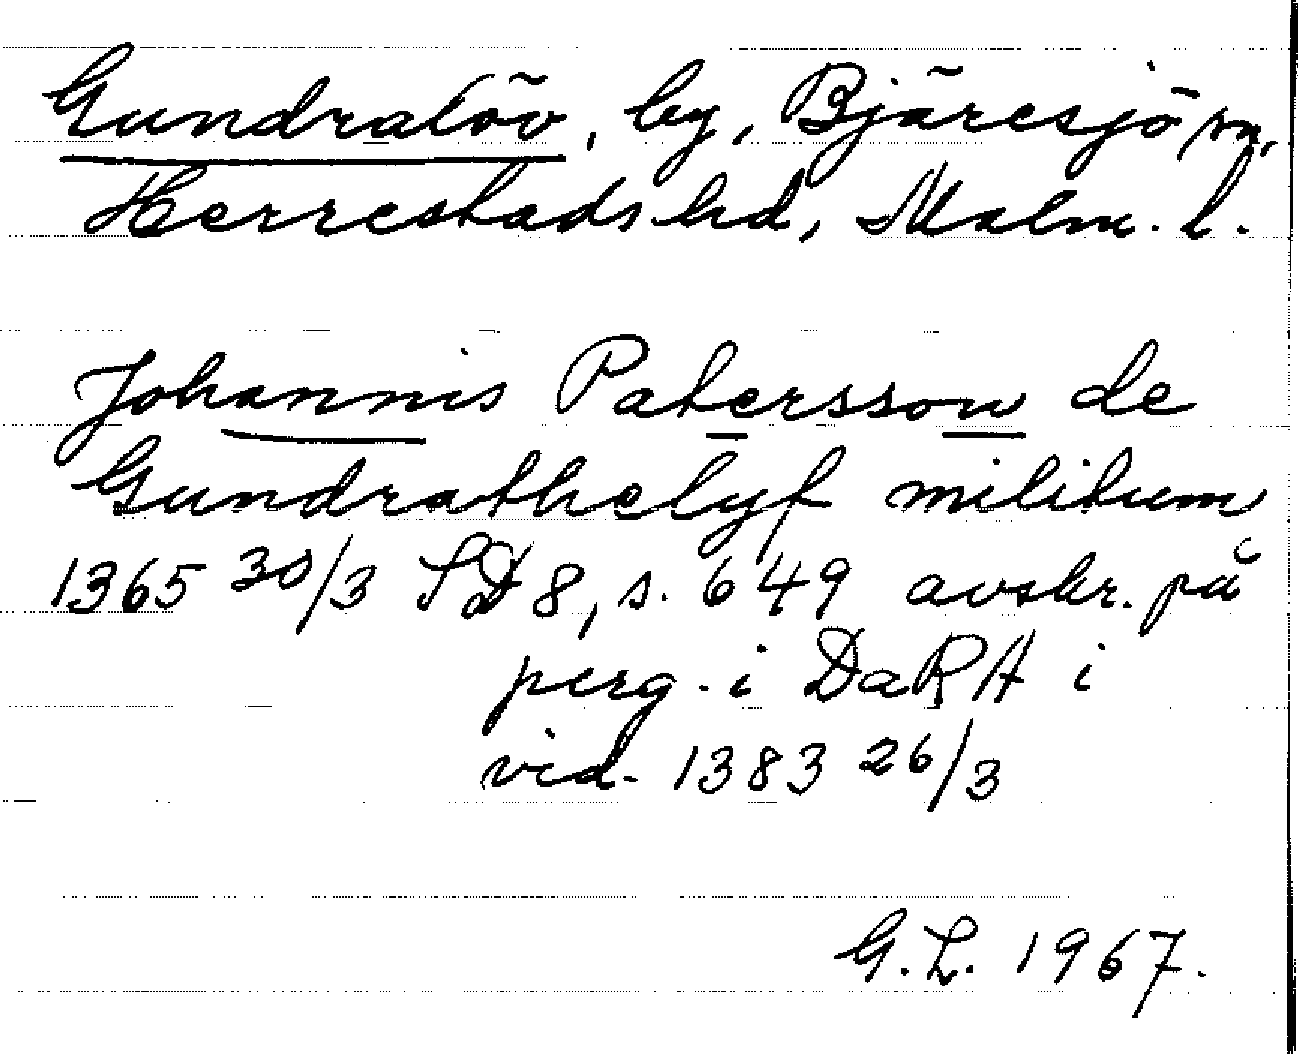 Gundralöv, by, Bjäresjö sn,
Herrestads hd, Malm. l.
Johannis Patersson de
Gundrathelyf militum
1365 30/3 SD 8, s. 649 avskr. på
perg. i DaRA i
vid. 1383 26/3
G.L. 1967.